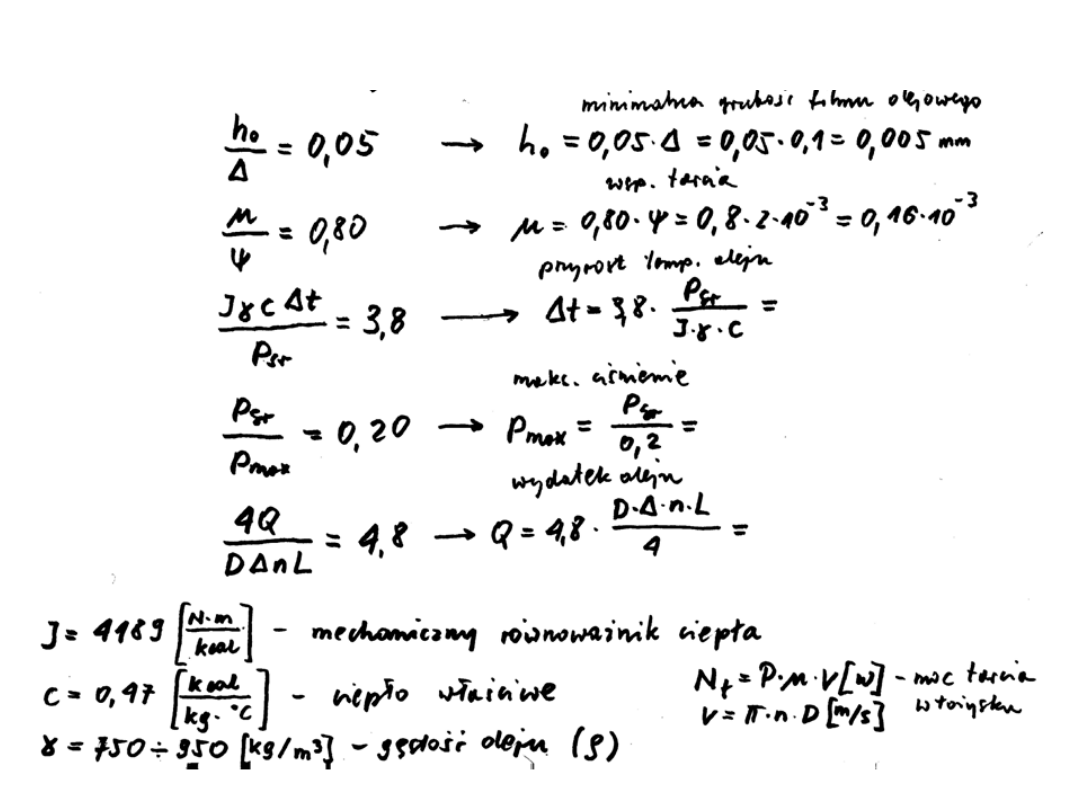 minimalna grubość filmu olejowego
h₀/Δ = 0,05 → h₀ = 0,05·Δ = 0,05·0,1 = 0,005 mm
wsp. tarcia
μ/ψ = 0,80 → μ = 0,80·ψ = 0,8·2·10⁻³ = 0,16·10⁻³
przyrost temp. oleju
JγcΔt/Pśr = 3,8 → Δt = 3,8· Pśr/J·γ·c =
maks. ciśnienie
Pśr/Pmax = 0,20 → Pmax = Pśr/0,2 =
wydatek oleju
4Q/DΔnL = 4,8 → Q = 4,8· D·Δ·n·L/4 =
J = 4189 [N·m/kcal] - mechaniczny równoważnik ciepła
c = 0,47 [kcal/kg·°C] - ciepło właściwe
γ = 750÷950 [kg/m³] - gęstość oleju (ρ)
Nt = P·μ·V [W] - moc tarcia
V = π·n·D [m/s] w łożysku